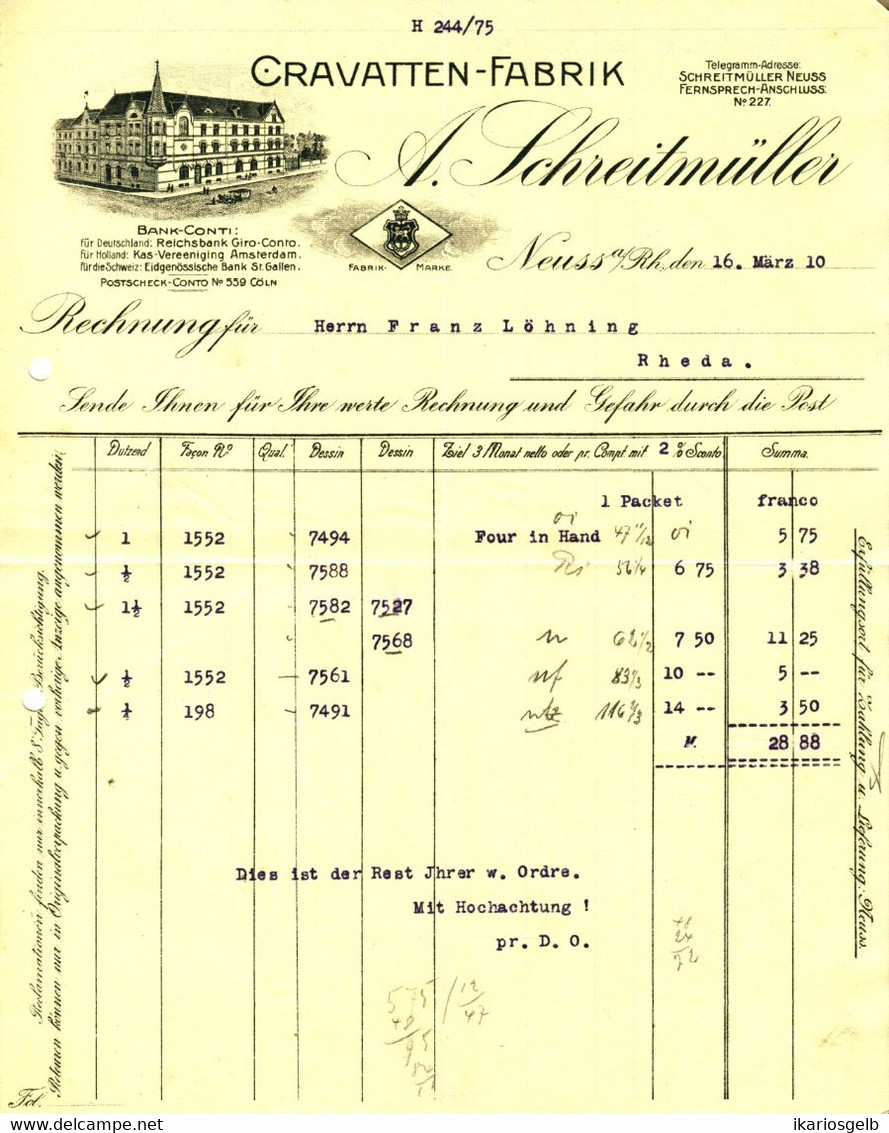 H 244/75
CRAVATTEN-FABRIK
Telegramm-Adresse:
SCHREITMÜLLER NEUSS
FERNSPRECH-ANSCHLUSS:
No 227.
A. Schreitmüller
BANK-CONTI:
für Deutschland: Reichsbank Giro-Conto.
für Holland: Kas-Vereeniging Amsterdam.
für die Schweiz: Eidgenössische Bank St. Gallen.
POSTSCHECK-CONTO No 559 CÖLN
FABRIK- MARKE.
Neuss a/Rh, den 16. März 10
Rechnung für Herrn Franz Löhning
Rheda.
Sende Ihnen für Ihre werte Rechnung und Gefahr durch die Post
Dutzend Façon No Qual. Dessin Dessin Ziel 3 Monat netto oder pr. Compt mit 2 % Sconto Summa.
1 Packet franco
1 1552 7494 Four in Hand 47 11/12 5 75
½ 1552 7588 56 1/4 6 75 3 38
1½ 1552 7582 7527
7568 62 1/2 7 50 11 25
½ 1552 7561 83 1/3 10 -- 5 --
¼ 198 7491 116 2/3 14 -- 3 50
M. 28 88
Dies ist der Rest Jhrer w. Ordre.
Mit Hochachtung !
pr. D. O.
48
24
72
575 / 12
48 / 47
95
84
Reklamationen finden nur innerhalb 8 Tage Berücksichtigung.
Retouren können nur in Originalverpackung u. gegen vorherige Anzeige angenommen werden.
Erfüllungsort für Zahlung u. Lieferung: Neuss.
Fol.
www.delcampe.net
ikariosgelb